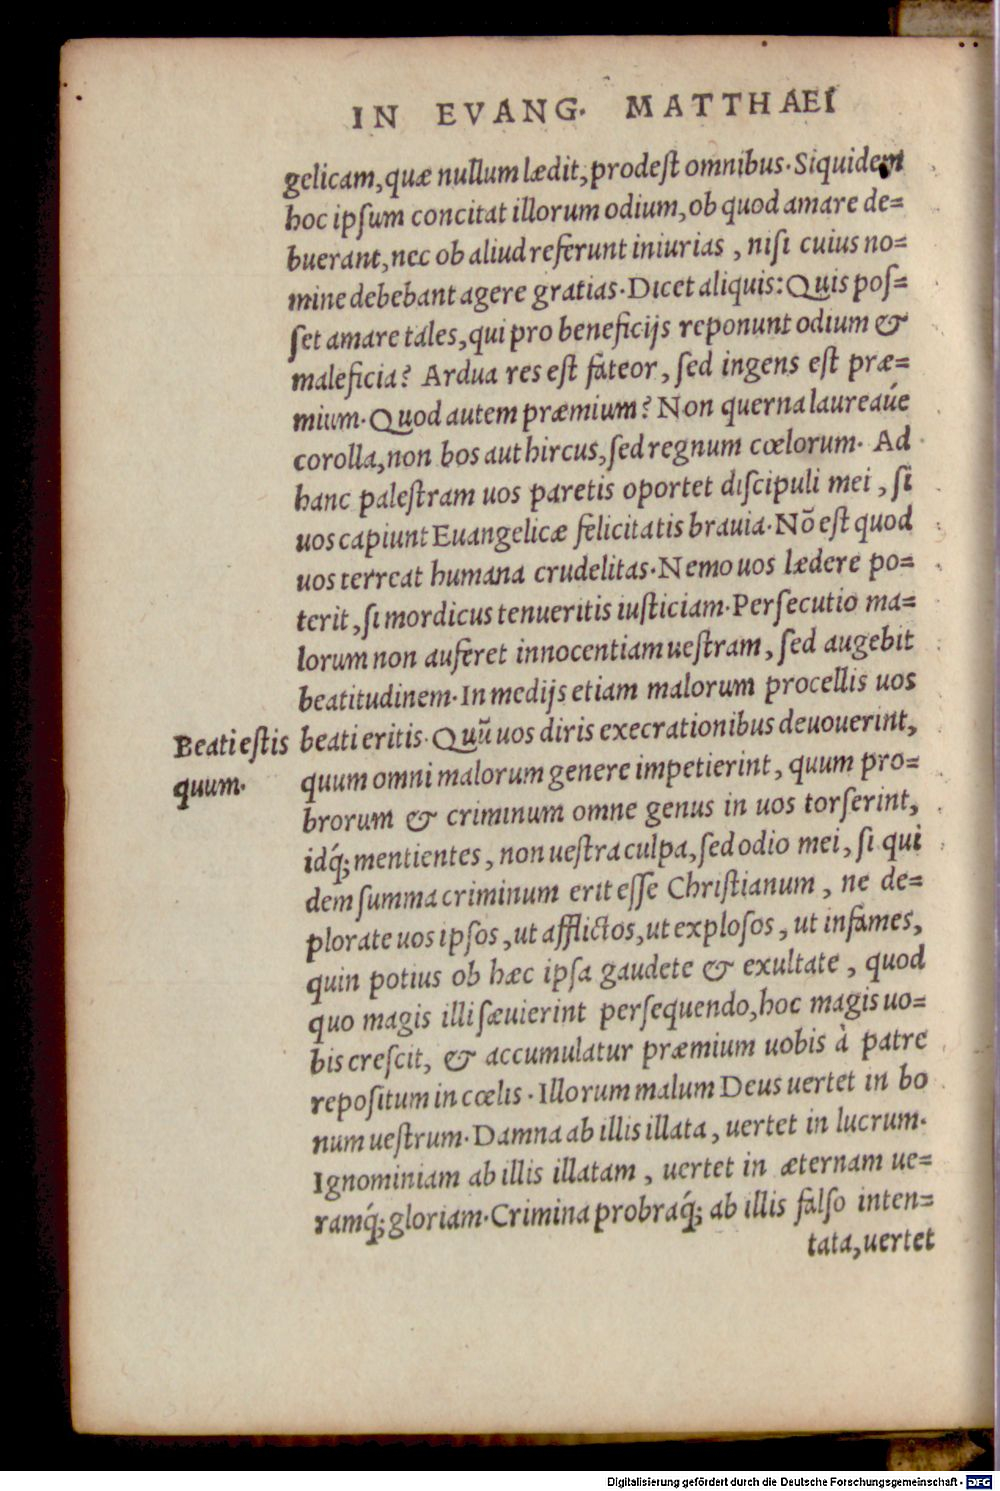 IN EVANG. MATTHAEI
gelicam, quæ nullum lædit, prodest omnibus. Siquidem
hoc ipsum concitat illorum odium, ob quod amare de=
buerant, nec ob aliud referunt iniurias, nisi cuius no=
mine debebant agere gratias. Dicet aliquis: Quis pos=
set amare tales, qui pro beneficijs reponunt odium &
maleficia? Ardua res est fateor, sed ingens est præ=
mium. Quod autem præmium? Non querna laureaúe
corolla, non bos aut hircus, sed regnum cœlorum. Ad
hanc palestram uos paretis oportet discipuli mei, si
uos capiunt Euangelicæ felicitatis brauia. Nõ est quod
uos terreat humana crudelitas. Nemo uos lædere po=
terit, si mordicus tenueritis iusticiam. Persecutio ma=
lorum non auferet innocentiam uestram, sed augebit
beatitudinem. In medijs etiam malorum procellis uos
Beati estis beati eritis. Quũ uos diris execrationibus deuouerint,
quum. quum omni malorum genere impetierint, quum pro=
brorum & criminum omne genus in uos torserint,
idq́; mentientes, non uestra culpa, sed odio mei, si qui
dem summa criminum erit esse Christianum, ne de=
plorate uos ipsos, ut afflictos, ut explosos, ut infames,
quin potius ob hæc ipsa gaudete & exultate, quod
quo magis illi sæuierint persequendo, hoc magis uo=
bis crescit, & accumulatur præmium uobis à patre
repositum in cœlis. Illorum malum Deus uertet in bo
num uestrum. Damna ab illis illata, uertet in lucrum.
Ignominiam ab illis illatam, uertet in æternam ue=
ramq́; gloriam. Crimina probraq́; ab illis falso inten=
tata, uertet
Digitalisierung gefördert durch die Deutsche Forschungsgemeinschaft - DFG